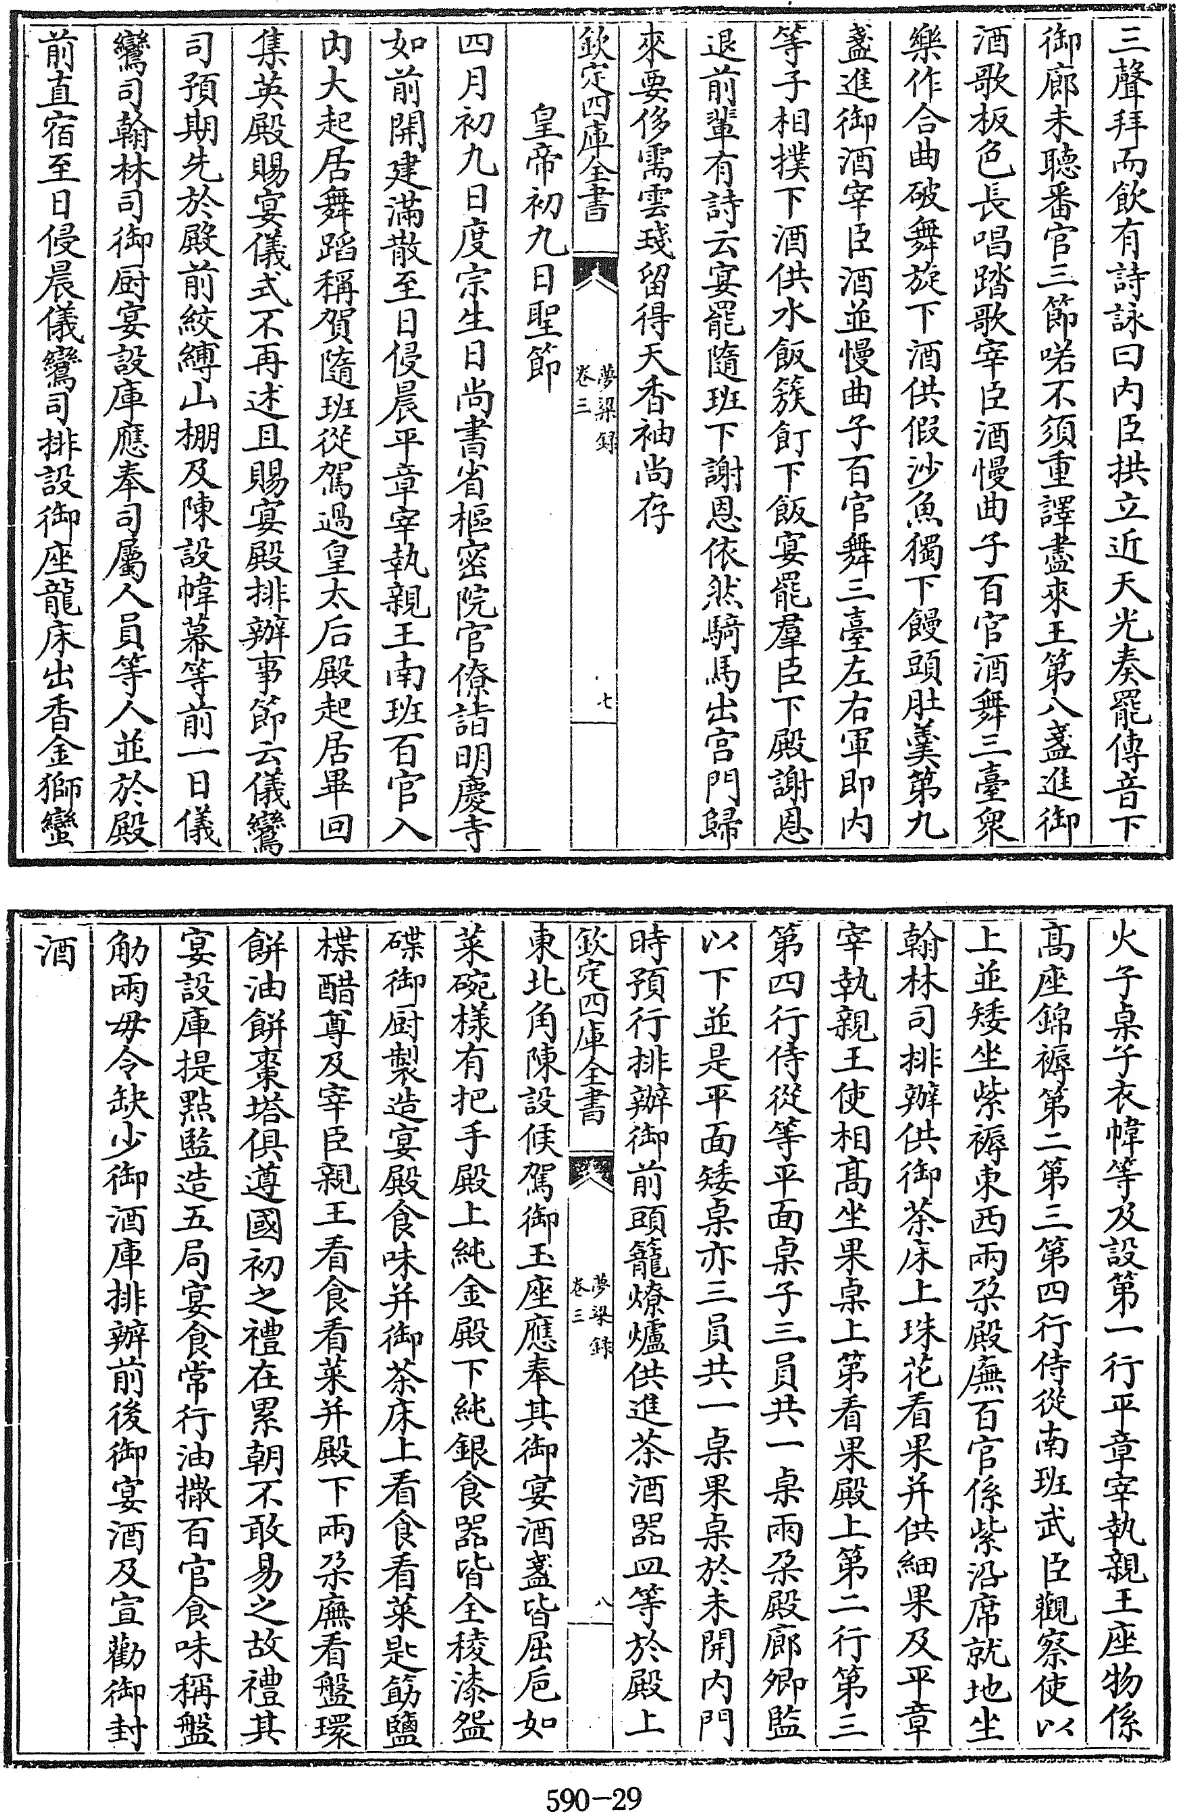 三聲拜而飲有詩詠曰内臣拱立近天光奏罷傳音下
御廊未聽番官三節喏不須重譯盡來王第八盞進御
酒歌板色長唱踏歌宰臣酒慢曲子百官酒舞三臺衆
樂作合曲破舞旋下酒供假沙魚獨下饅頭肚羹第九
盞進御酒宰臣酒並慢曲子百官舞三臺左右軍即内
等子相撲下酒供水飯簇飣下飯宴罷羣臣下殿謝恩
退前輩有詩云宴罷隨班下謝恩依然騎馬出宫門歸
來要侈需雲琖留得天香袖尚存
欽定四庫全書
夢粱録
卷三
七
皇帝初九日聖節
四月初九日度宗生日尚書省樞密院官僚詣明慶寺
如前開建滿散至日侵晨平章宰執親王南班百官入
内大起居舞蹈稱賀隨班從駕過皇太后殿起居畢回
集英殿賜宴儀式不再述且賜宴殿排辦事節云儀鸞
司預期先於殿前絞縛山棚及陳設幃幕等前一日儀
鸞司翰林司御厨宴設庫應奉司屬人員等人並於殿
前直宿至日侵晨儀鸞司排設御座龍床出香金獅蠻
火子桌子衣幃等及設第一行平章宰執親王座物係
高座錦褥第二第三第四行侍從南班武臣觀察使以
上並矮坐紫褥東西兩朶殿廡百官係紫沿席就地坐
翰林司排辦供御茶床上珠花看果并供細果及平章
宰執親王使相高坐果桌上第看果殿上第二行第三
第四行侍從等平面桌子三員共一桌兩朶殿廊卿監
以下並是平面矮桌亦三員共一桌果桌於未開内門
時預行排辦御前頭籠燎爐供進茶酒器皿等於殿上
欽定四庫全書
夢粱録
卷三
八
東北角陳設候駕御玉座應奉其御宴酒盞皆屈巵如
菜碗様有把手殿上純金殿下純銀食器皆全稜漆盌
碟御厨製造宴殿食味并御茶床上看食看菜匙筯鹽
楪醋尊及宰臣親王看食看菜并殿下兩朶廡看盤環
餅油餅棗塔俱遵國初之禮在累朝不敢易之故禮其
宴設庫提點監造五局宴食常行油撒百官食味稱盤
觔兩毋令缺少御酒庫排辦前後御宴酒及宣勸御封
酒
590-29